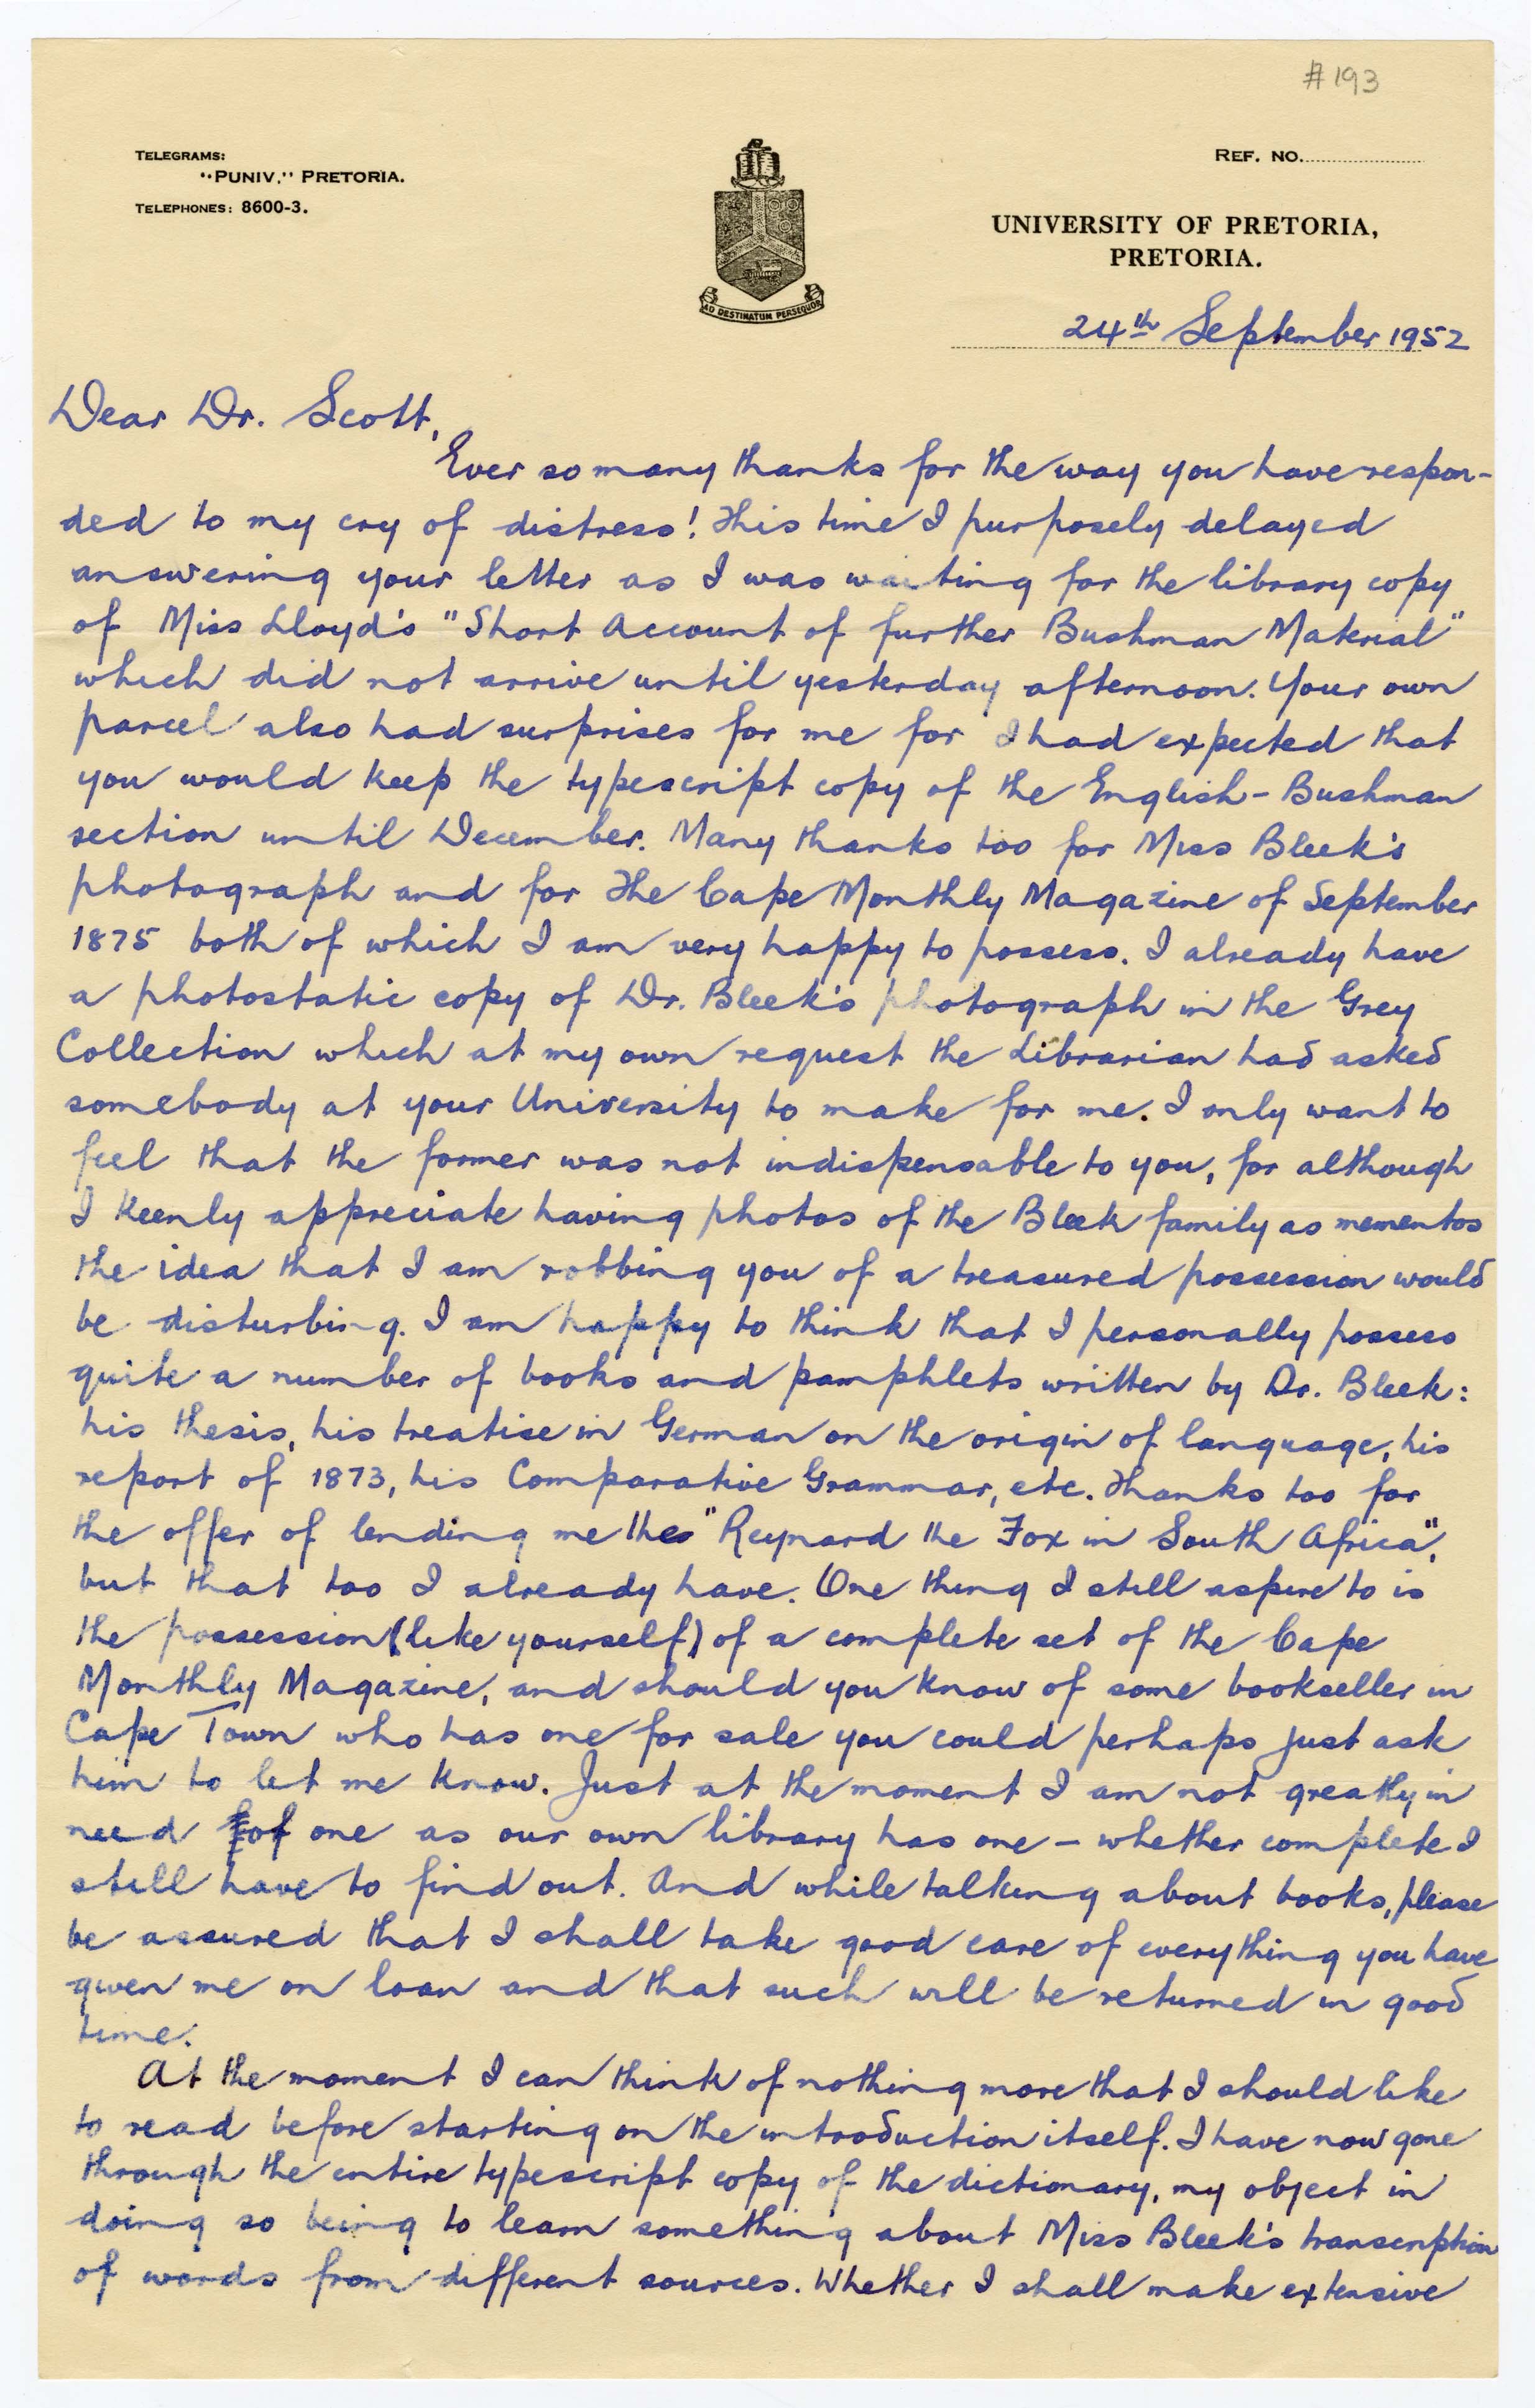 #193
TELEGRAMS:
"PUNIV." PRETORIA.
TELEPHONES: 8600-3.
REF. NO.
UNIVERSITY OF PRETORIA,
PRETORIA.
AD DESTINATUM PERSEQUOR
24th September 1952
Dear Dr. Scott,
Ever so many thanks for the way you have respon-
ded to my cry of distress! This time I purposely delayed
answering your letter as I was waiting for the library copy
of Miss Lloyd's "Short Account of further Bushman Material"
which did not arrive until yesterday afternoon. Your own
parcel also had surprises for me for I had expected that
you would keep the typescript copy of the English-Bushman
section until December. Many thanks too for Miss Bleek's
photograph and for the Cape Monthly Magazine of September
1875 both of which I am very happy to possess. I already have
a photostatic copy of Dr. Bleek's photograph in the Grey
Collection which at my own request the Librarian had asked
somebody at your University to make for me. I only want to
feel that the former was not indispensable to you, for although
I keenly appreciate having photos of the Bleek family as mementos
the idea that I am robbing you of a treasured possession would
be disturbing. I am happy to think that I personally possess
quite a number of books and pamphlets written by Dr. Bleek:
his thesis, his treatise in German on the origin of language, his
report of 1873, his Comparative Grammar, etc. Thanks too for
the offer of lending me the "Reynard the Fox in South Africa",
but that too I already have. One thing I still aspire to is
the possession (like yourself) of a complete set of the Cape
Monthly Magazine, and should you know of some bookseller in
Cape Town who has one for sale you could perhaps just ask
him to let me know. Just at the moment I am not greatly in
need of one as our own library has one – whether complete I
still have to find out. And while talking about books, please
be assured that I shall take good care of everything you have
given me on loan and that such will be returned in good
time.
At the moment I can think of nothing more that I should like
to read before starting on the introduction itself. I have now gone
through the entire typescript copy of the dictionary, my object in
doing so being to learn something about Miss Bleek's transcription
of words from different sources. Whether I shall make extensive